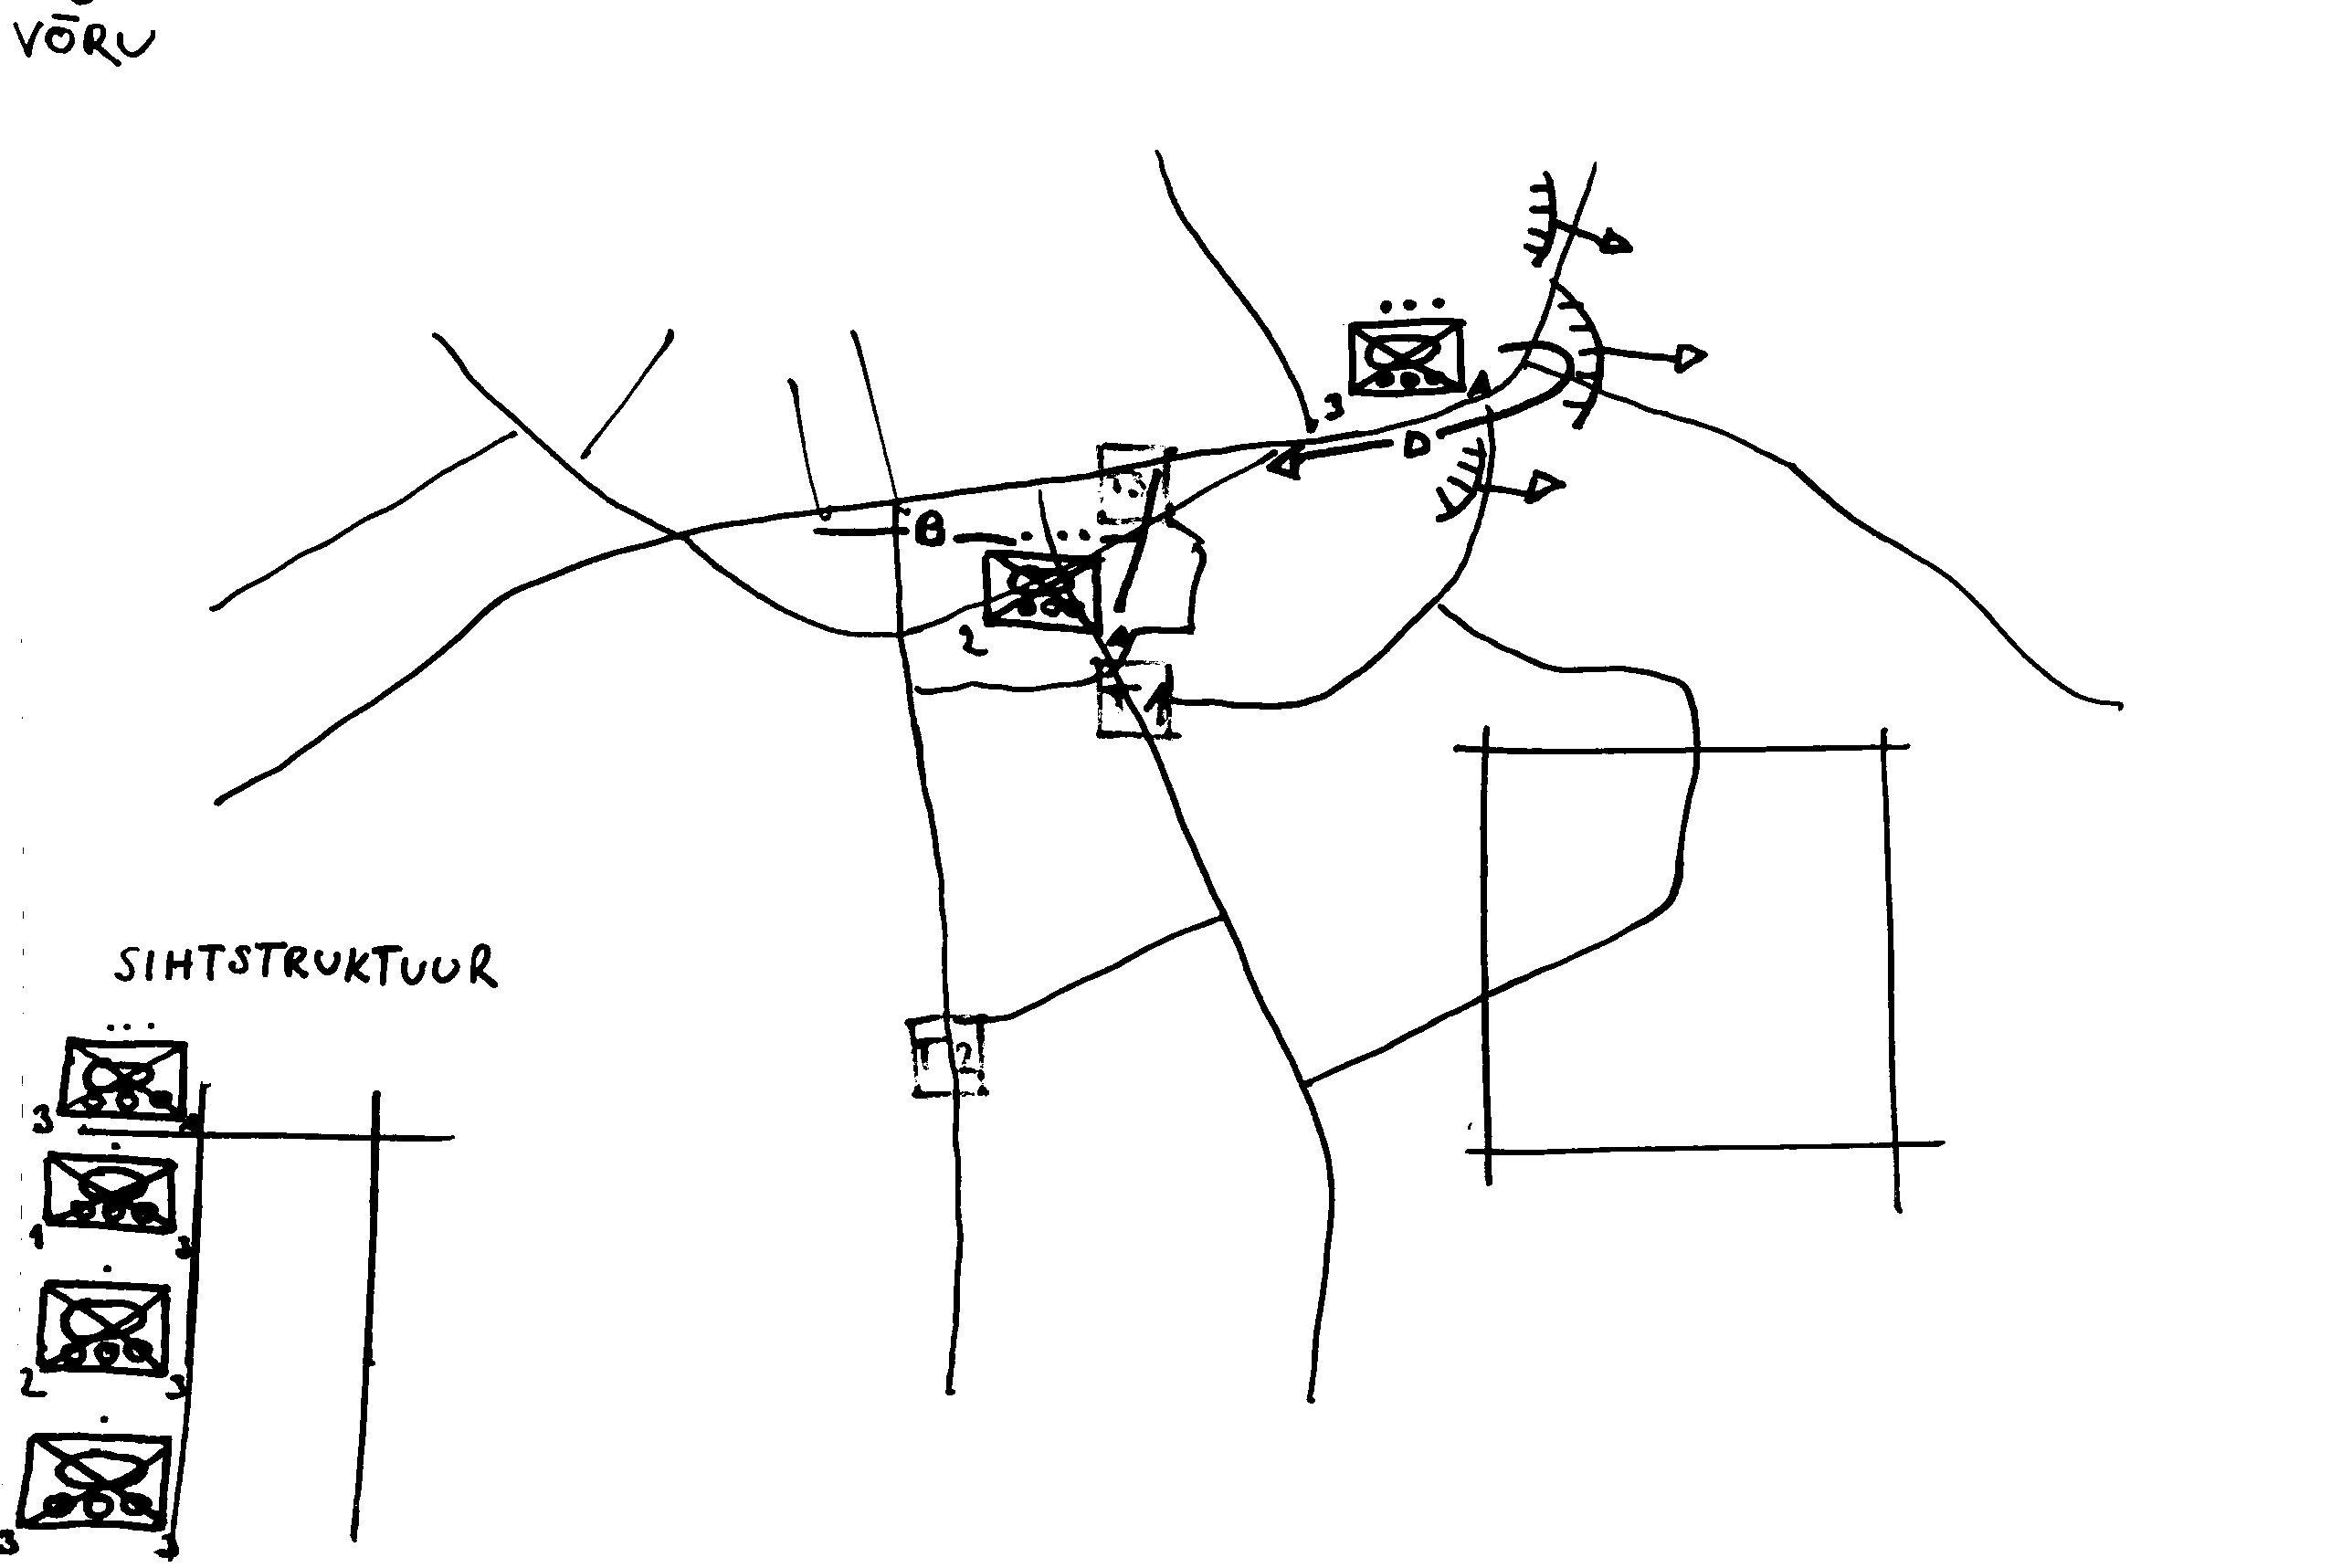 VÕRU
3
A
D
B
2
SIHTSTRUKTUUR
3
A
1
3
2
3
3
3